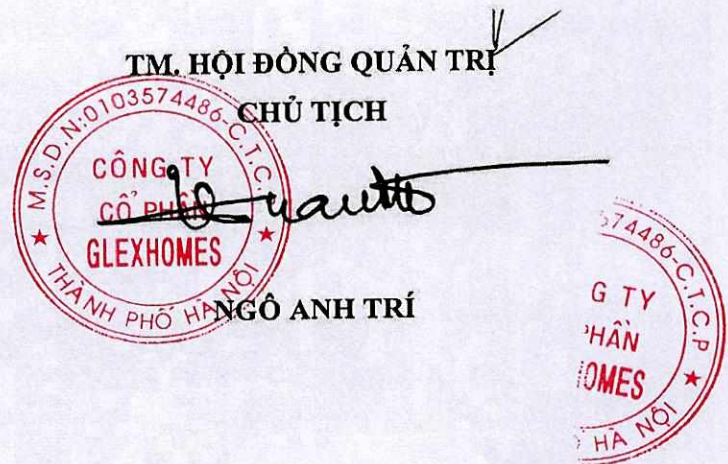 TM. HỘI ĐỒNG QUẢN TRỊ
CHỦ TỊCH
M.S.D.N:0103574486-C.T.C.P
CÔNG TY
CỔ PHẦN
GLEXHOMES
THÀNH PHỐ HÀ NỘI
NGÔ ANH TRÍ
574486-C.T.C.P
G TY
PHẦN
OMES
HÀ NỘI